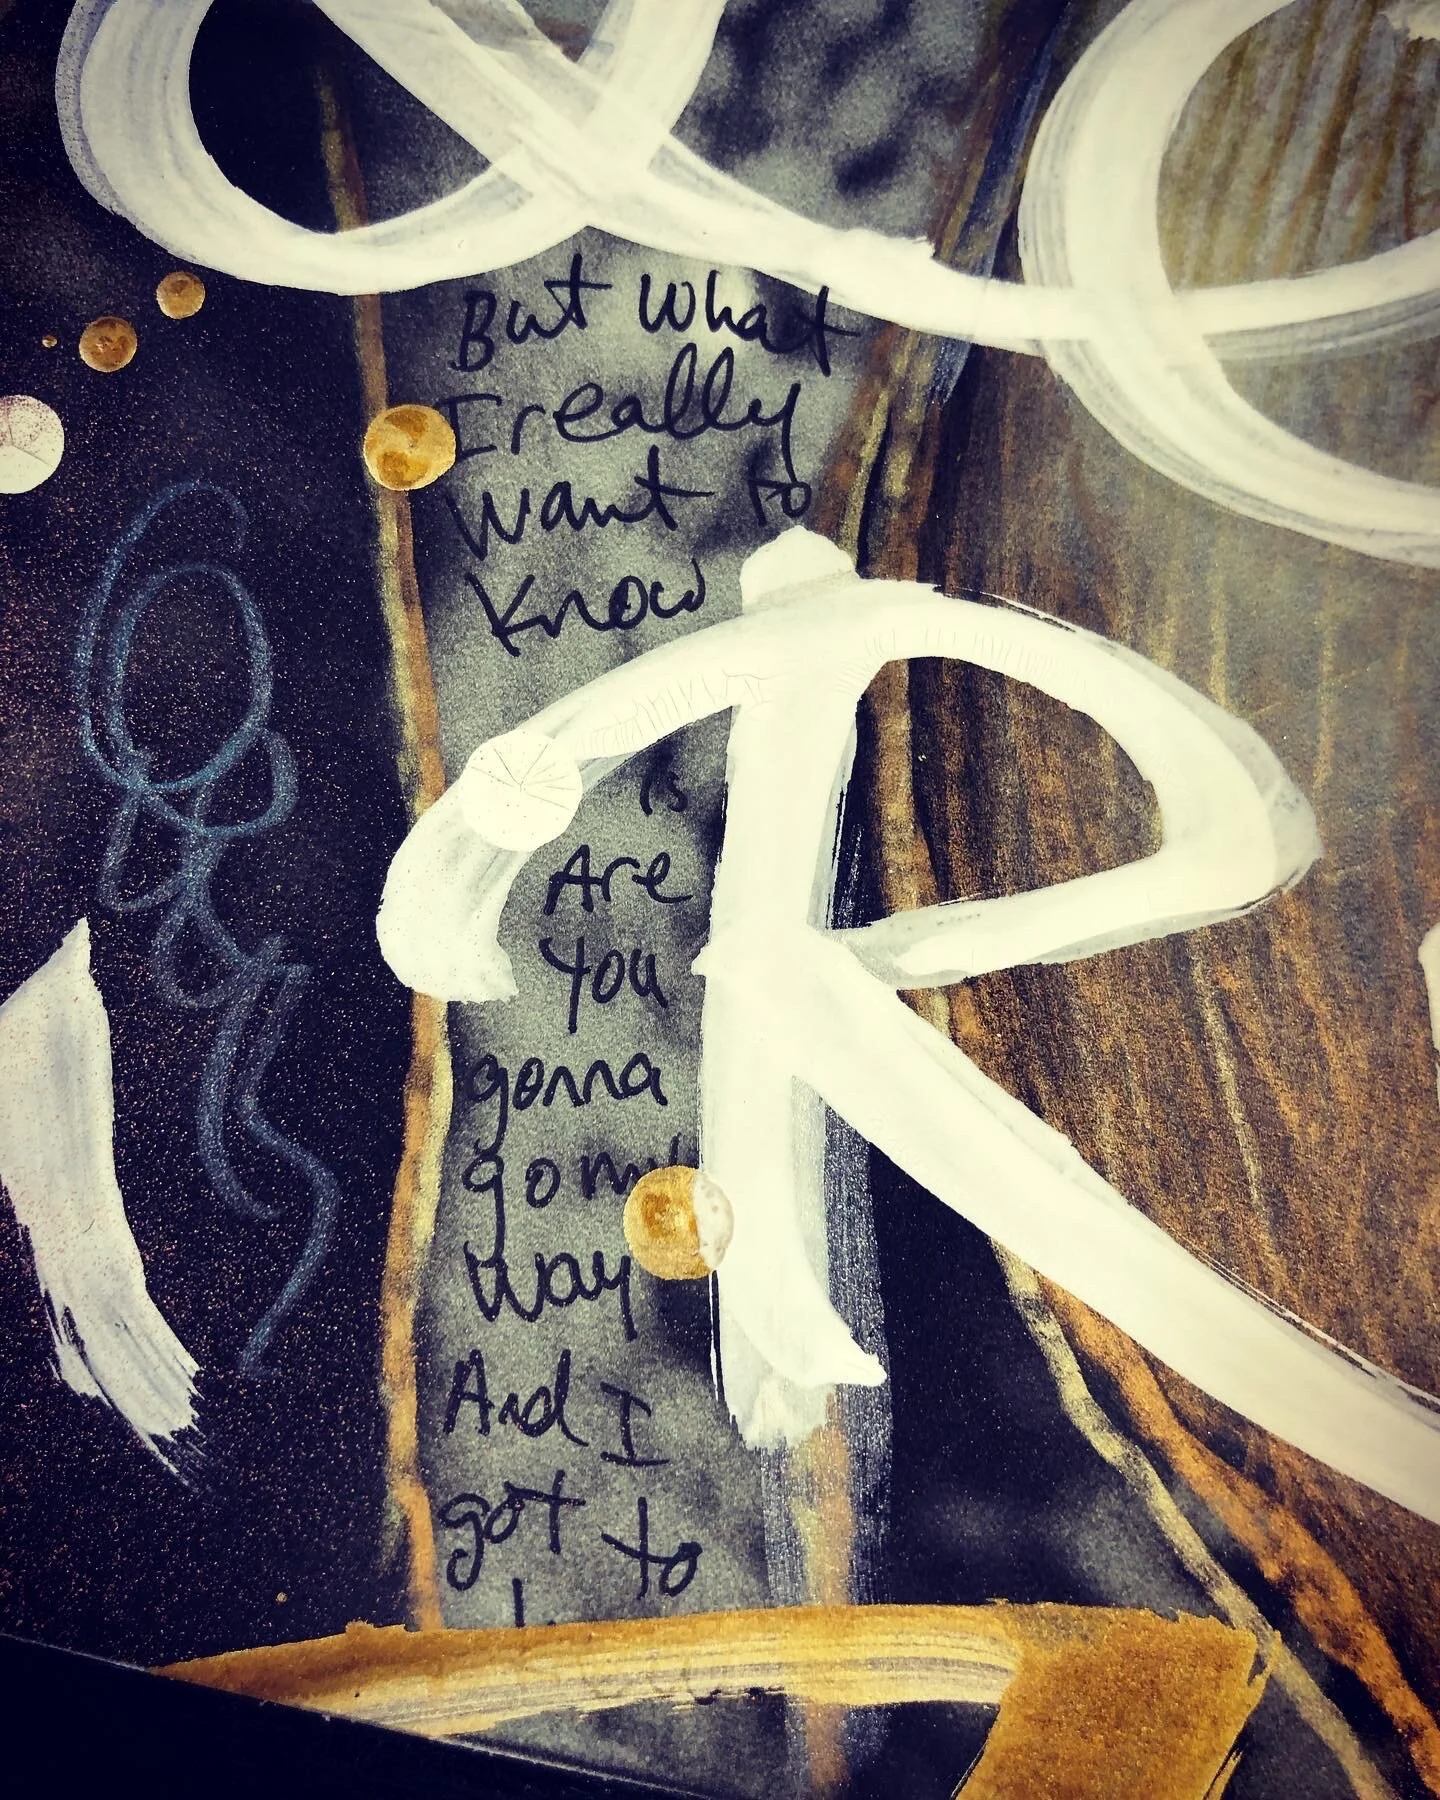 But what
I really
want to
know
is
Are
you
gonna
go my
way
And I
got to
R